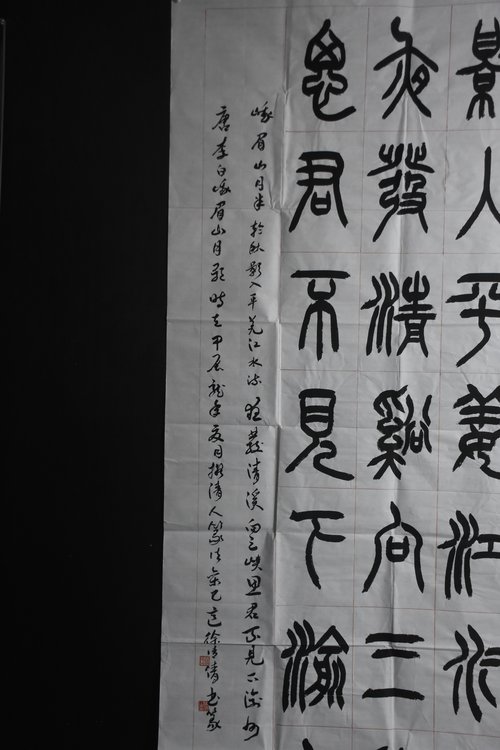 影入平羌江水
夜發清谿向三
思君不見下渝
峨眉山月半輪秋影入平羌江水流夜發清溪向三峽思君不見下渝州
唐李白峨眉山月歌時在甲辰龍年夏月擬清人篆法 徐 書篆